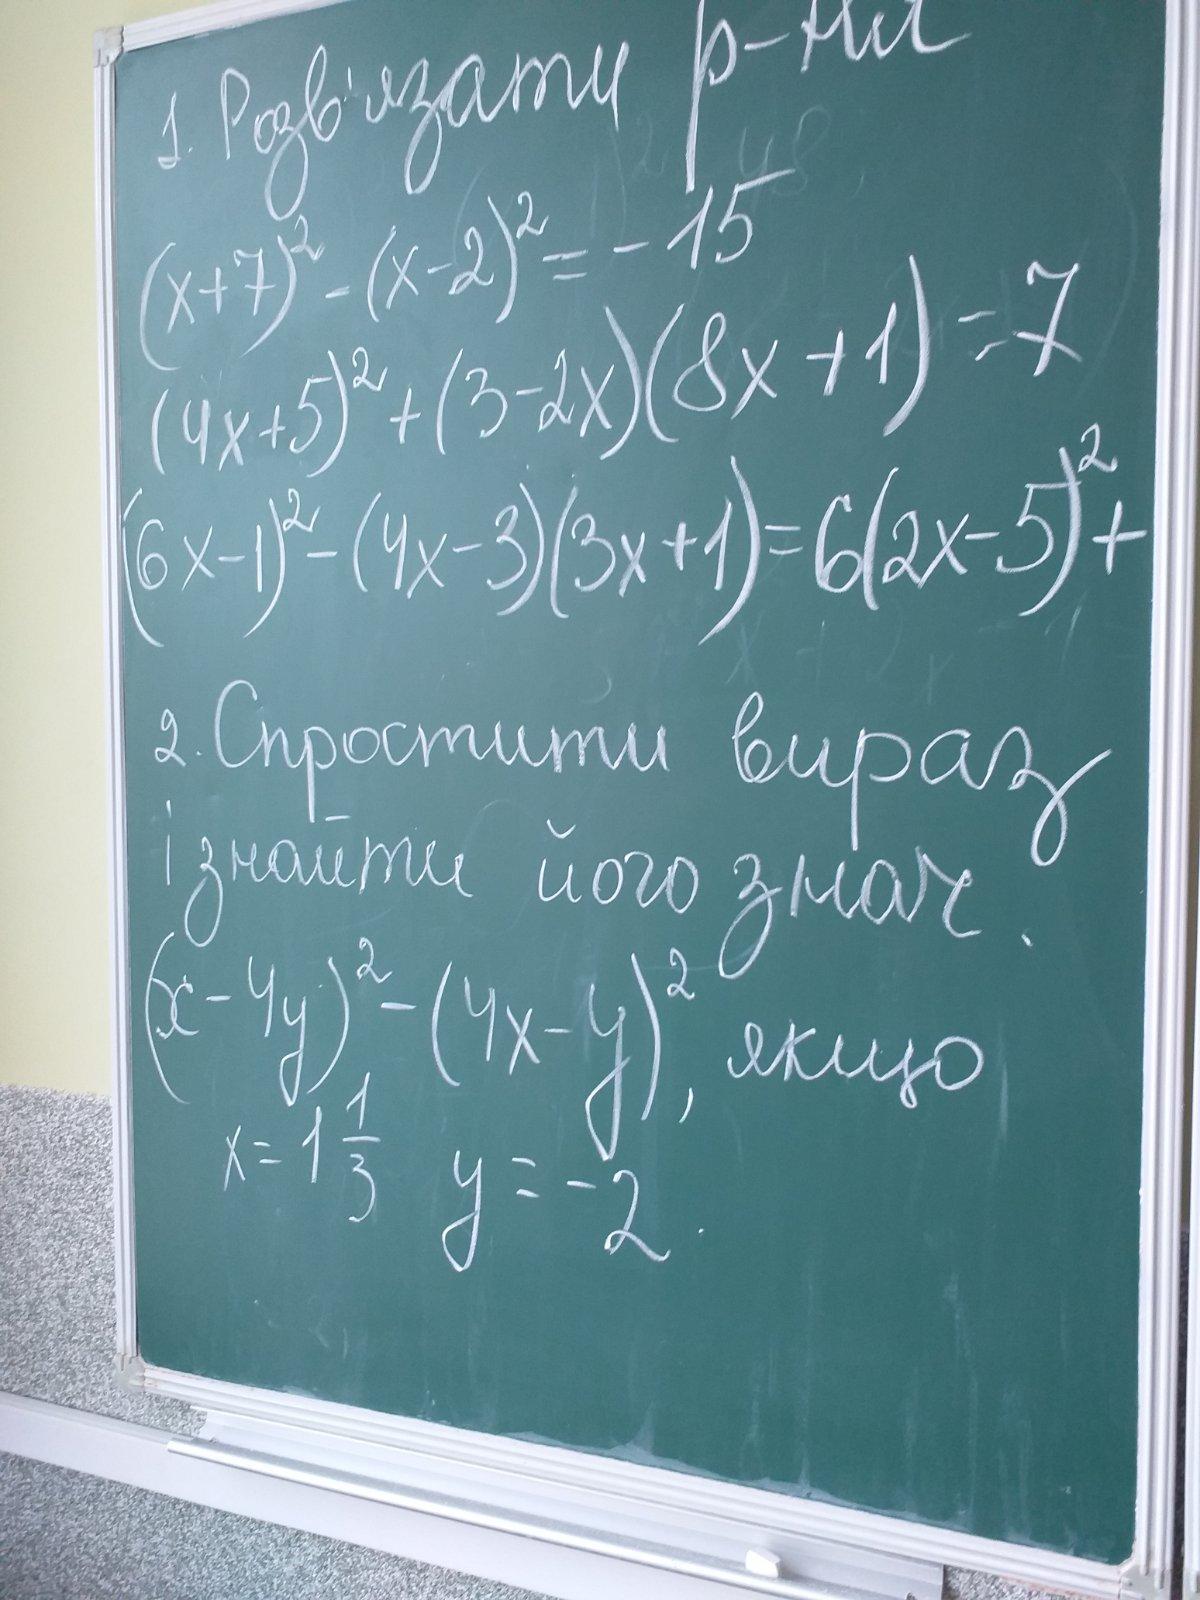 1. Розв'язати р-ня
(x+7)² - (x-2)² = -15
(4x+5)² + (3-2x)(8x+1) = 7
(6x-1)² - (4x-3)(3x+1) = 6(2x-5)² +
2. Спростити вираз
і знайти його знач.
(x-4y)² - (4x-y)², якщо
x = 1 1/3 y = -2.